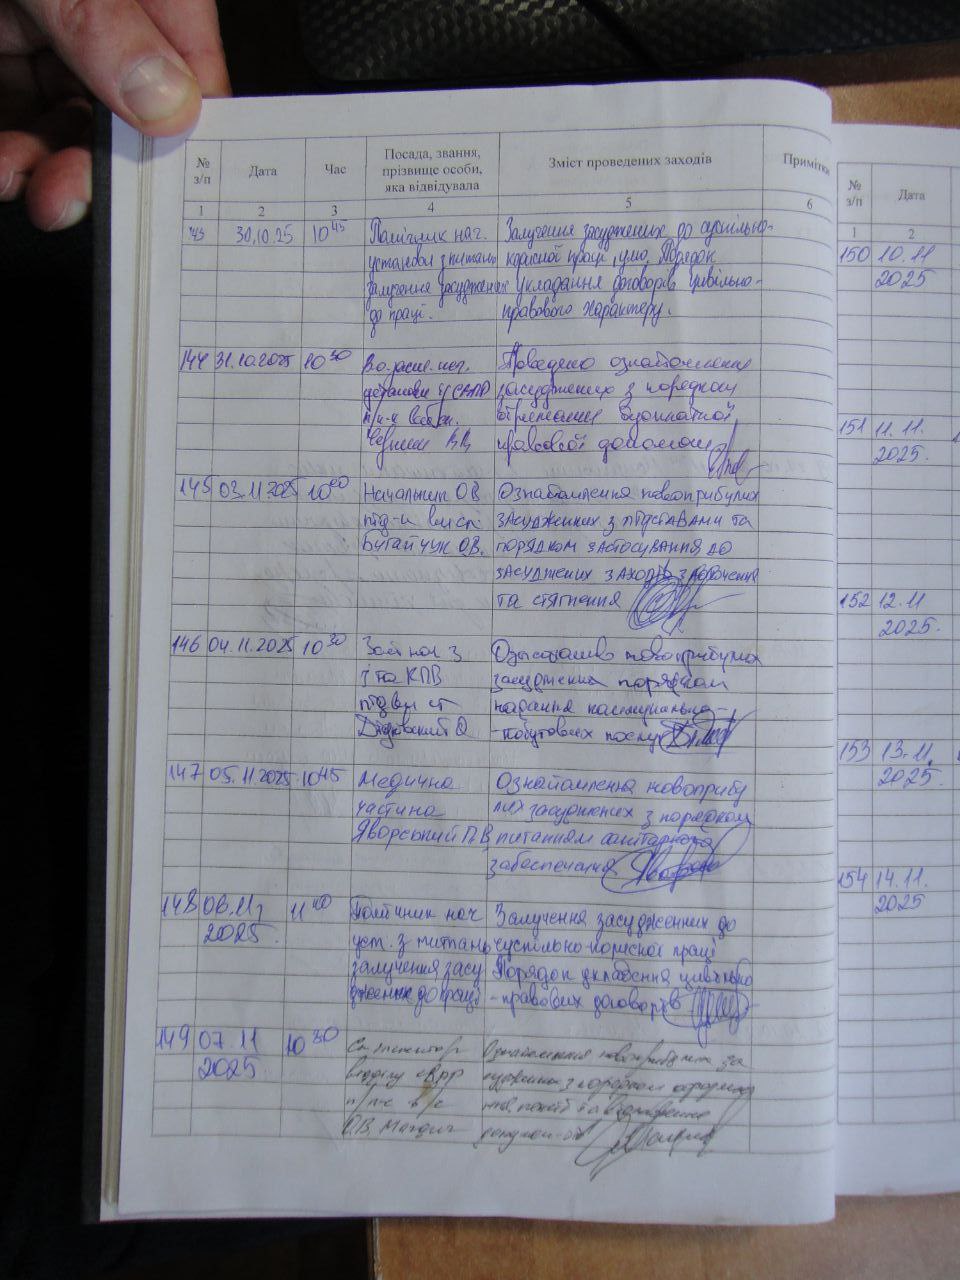 № з/п Дата Час Посада, звання, прізвище особи, яка відвідувала Зміст проведених заходів Примітки
1 2 3 4 5 6
30.10.25 10 45 Помічник нач. Залучення засуджених до суспільно-
установи з питань корисної праці, Порядок
залучення засуджених укладання договорів цивільно-
до праці. правового характеру.
144 31.10.2025 10 30 нач. Проведено ознайомлення
установи засуджених з порядком
отримання безоплатної
правової допомоги
145 03.11.2025 10 00 Начальник ОВ Ознайомлення новоприбулих
засуджених з підставами та
Бугайчук О.В. порядком застосування до
засуджених заходів заохочення
та стягнення
146 04.11.2025 10 30 новоприбулих
та КПВ засуджених порядком
надання комунально-
-побутових послуг
147 05.11.2025 10 45 Медична Ознайомлення новоприбу
частина лих засуджених з порядком
Яворський П.В. питанням санітарного
забезпечення
148 06.11. 2025 11 00 Помічник нач Залучення засудженних до
уст. з питань суспільно-корисної праці
залучення засу Порядок укладення цивільно
джених до праці -правових договорів
149 07.11 2025 10 30 Ознайомлення новоприбулих за
відділу з порядком
О.В.
№ з/п Дата
1 2
150 10.11 2025
151 11.11. 2025.
152 12.11 2025.
153 13.11. 2025.
154 14.11. 2025